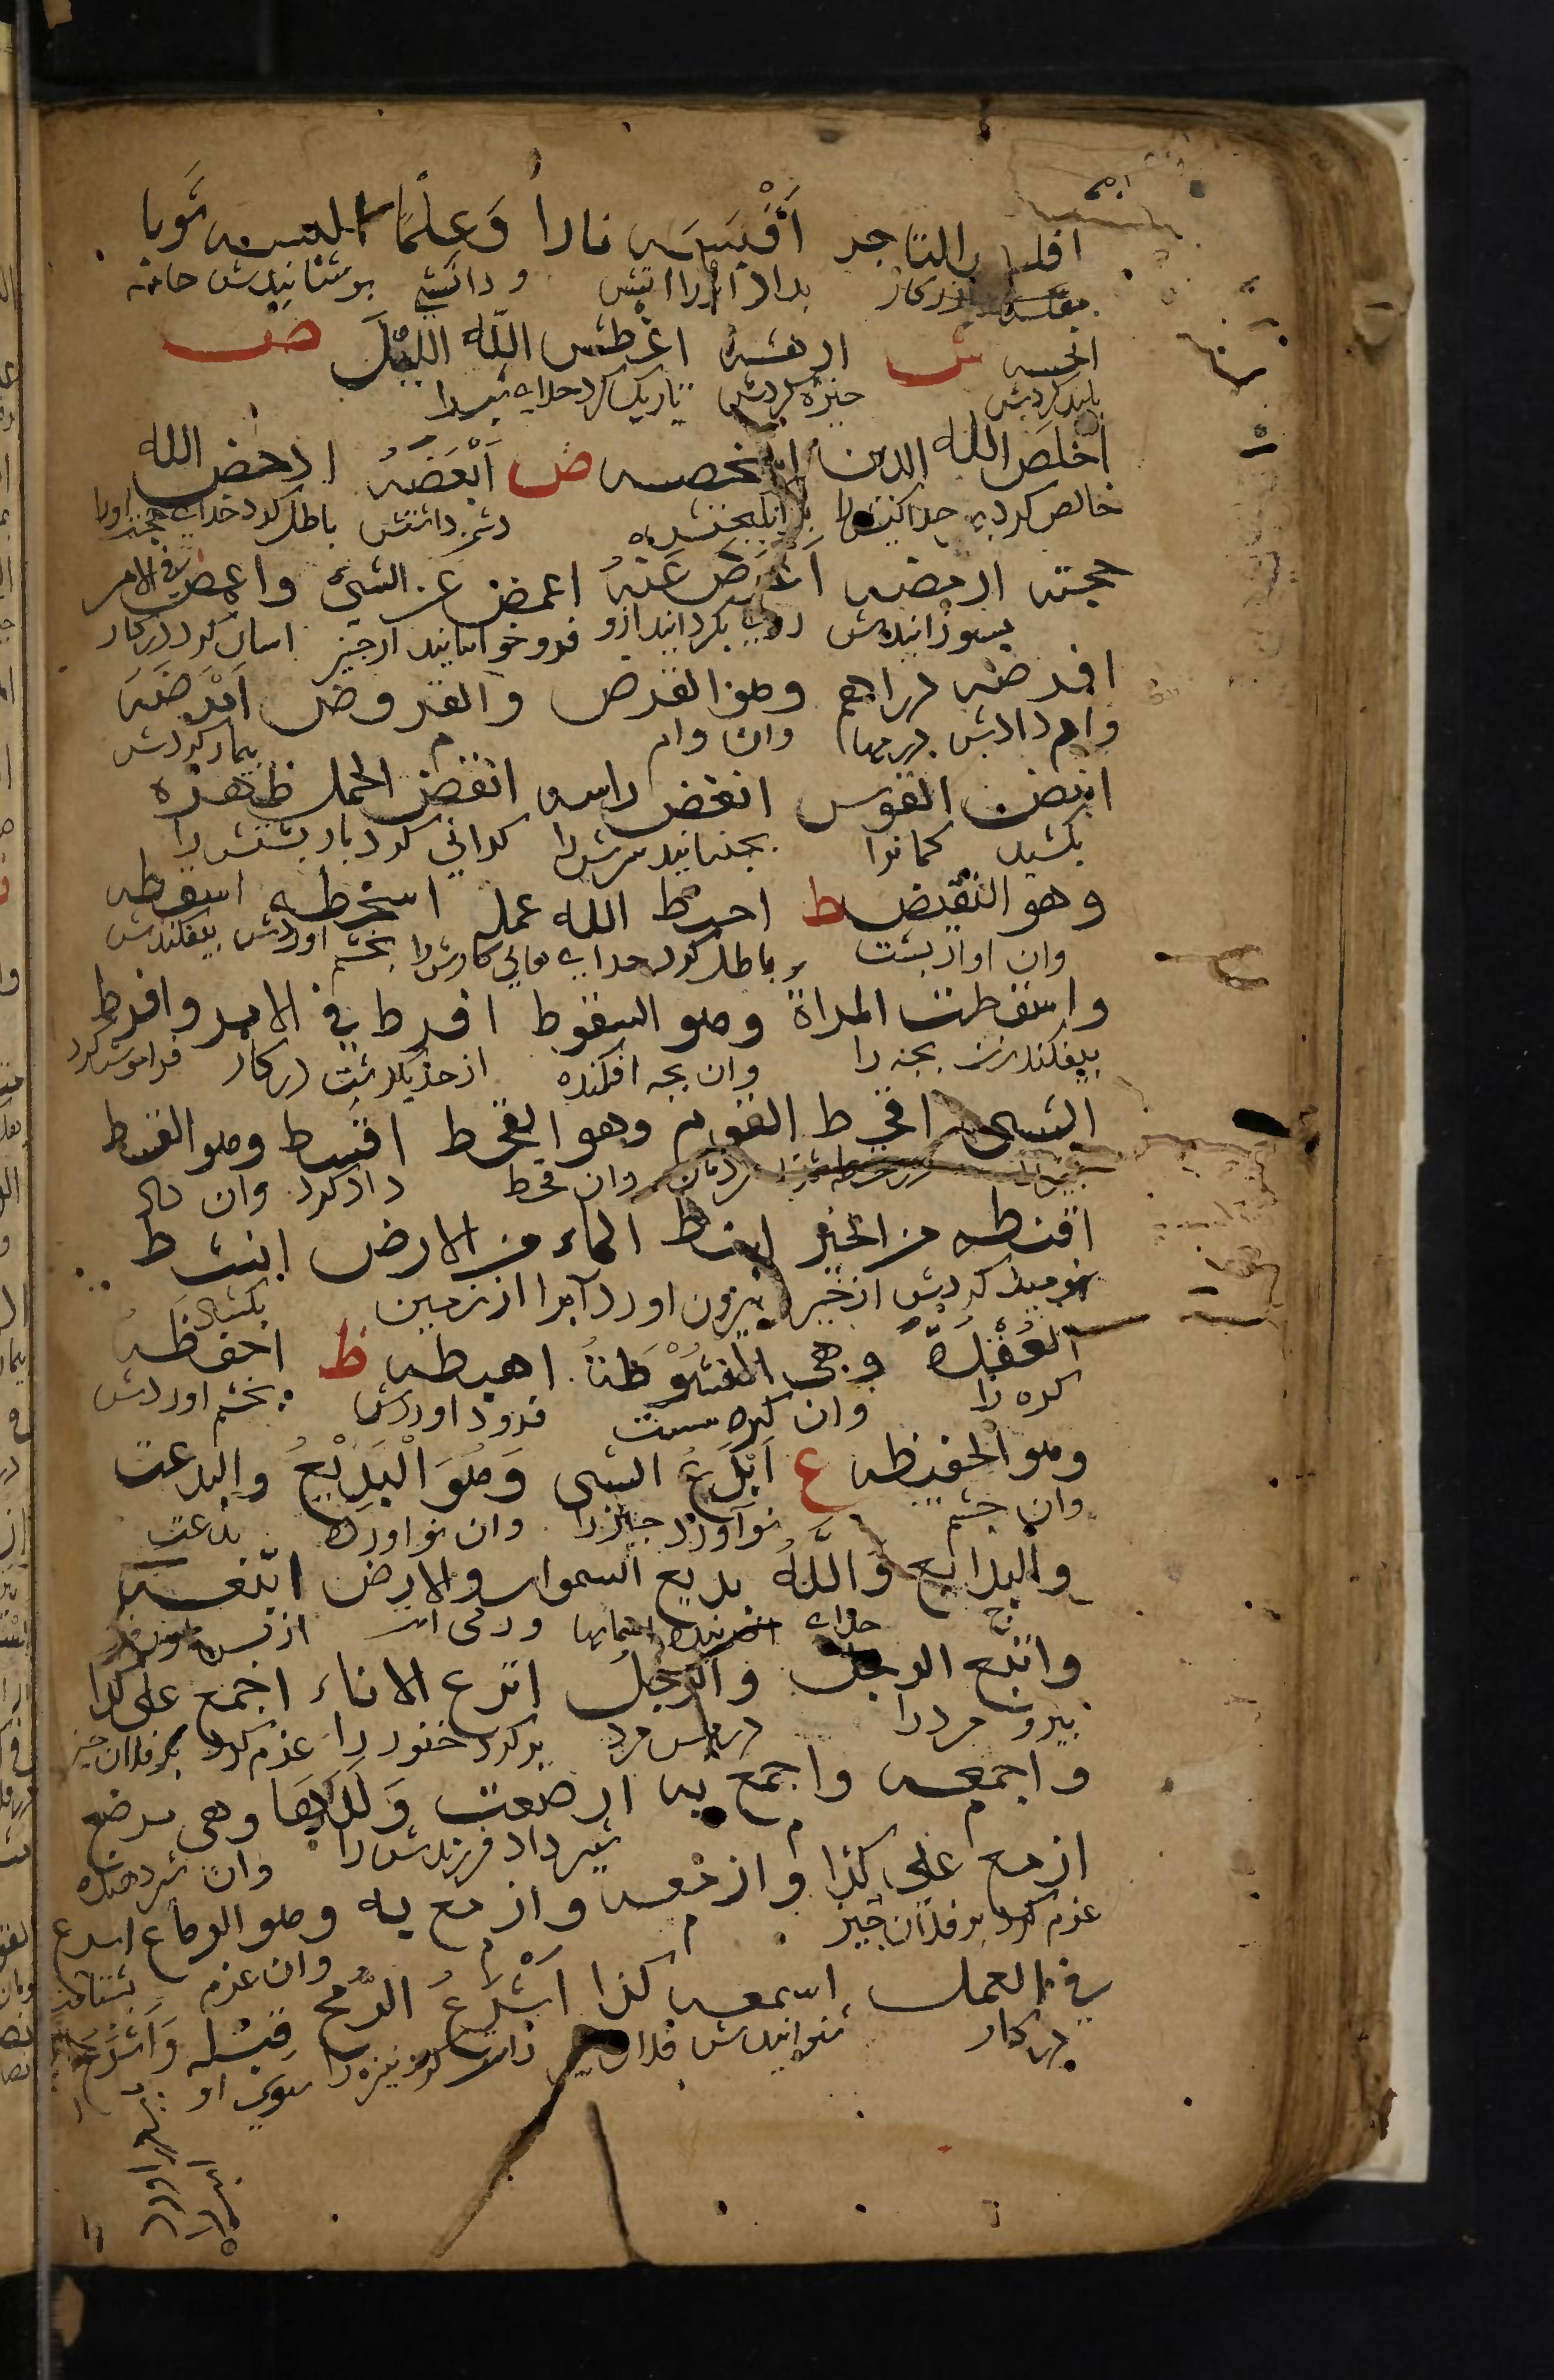 افلس التاجر اَقْبَسَه نارا وَعِلمًا البسه ثوبا
بداد او را اتش و دانشی بپوشانیدش جامه
انجسه ش ادهشهُ اغطش اللّه الليلَ ص
پلید کردش خیره کردش تاریک کرد خدای شب را
اخلص الله الدين اشخصه ض اَبْغَضَهُ ادحض الله
خالص کرد خدا دشمن داشتش باطل کرد خدای حجت او را
حجته ارمضه اَعْرَضَ عَنْهُ اغمض عن الشئ واغمض في الامر
بسوزانیدش روی بگردانید ازو فرو خوابانید از چیز اسان کرد در کار
اقرضه دراهم وهو القرض والقروض اَمْرَضَهُ
وام دادش درمها وان وام م بیمار کردش
انبض القوس انغض راسه انقض الحمل ظهره
بکشید کمانرا بجنبانید سرش را کرانی کرد بار پشتش را
وهو النقيض ط احبط الله عمله اسخطه اسقطه
وان اواز پشت باطل کرد خدای تعالی کارش را بخشم اوردش بیفکندش
واسقطت المراة وهو السقوط افرط في الامر وافرط
بیفکند زن بچه را وان بچه افکنده از حد بگذشت در کار فراموش کرد
الشئ اقحط القوم وهو القحط اقسط وهو القسط
چیز را مردمان وان قحط داد کرد وان داد
اقنطه من الخير انبط الماء من الارض انشط
نومید کردش از خیر بیرون اورد آبرا از زمین بکشاد
العُقْدَة وهي الانشُوْطَةُ اهبطه ظ احفظه
کره را وان کره سست فرود اوردش بخشم اوردش
وهو الحفيظه ع اَبْدَعَ الشئ وَهُوَ الْبَدِيْعُ والبدعت
وان خشم نوآورد چیز را وان نو اورده بدعت
والبدايع وَاللَّهُ بديع السموات والارض اتبعه
خدای افریننده اسمانها و زمی است از پس
واتبع الرجل والرجل اترع الاناء اجمع على كذا
مرد را مرد پر کرد خنور را عزم کرد بر فلان چیز
واجمعه واجمع به ارضعت وَلَدَهَا وهي مرضع
شیر داد فرزندش را وان شیر دهنده
ازمع على كذا وازمعه وازمع به وهو الزماع اسرع
عزم کرد بر فلان چیز م م وان عزم بشتافت
في العمل اسمعه كذا اَشْرَعَ الرُّمح قِبَله وَاَشْرَعَ
در کار شنوانیدش فلان راست کرد نیزه را سوی او